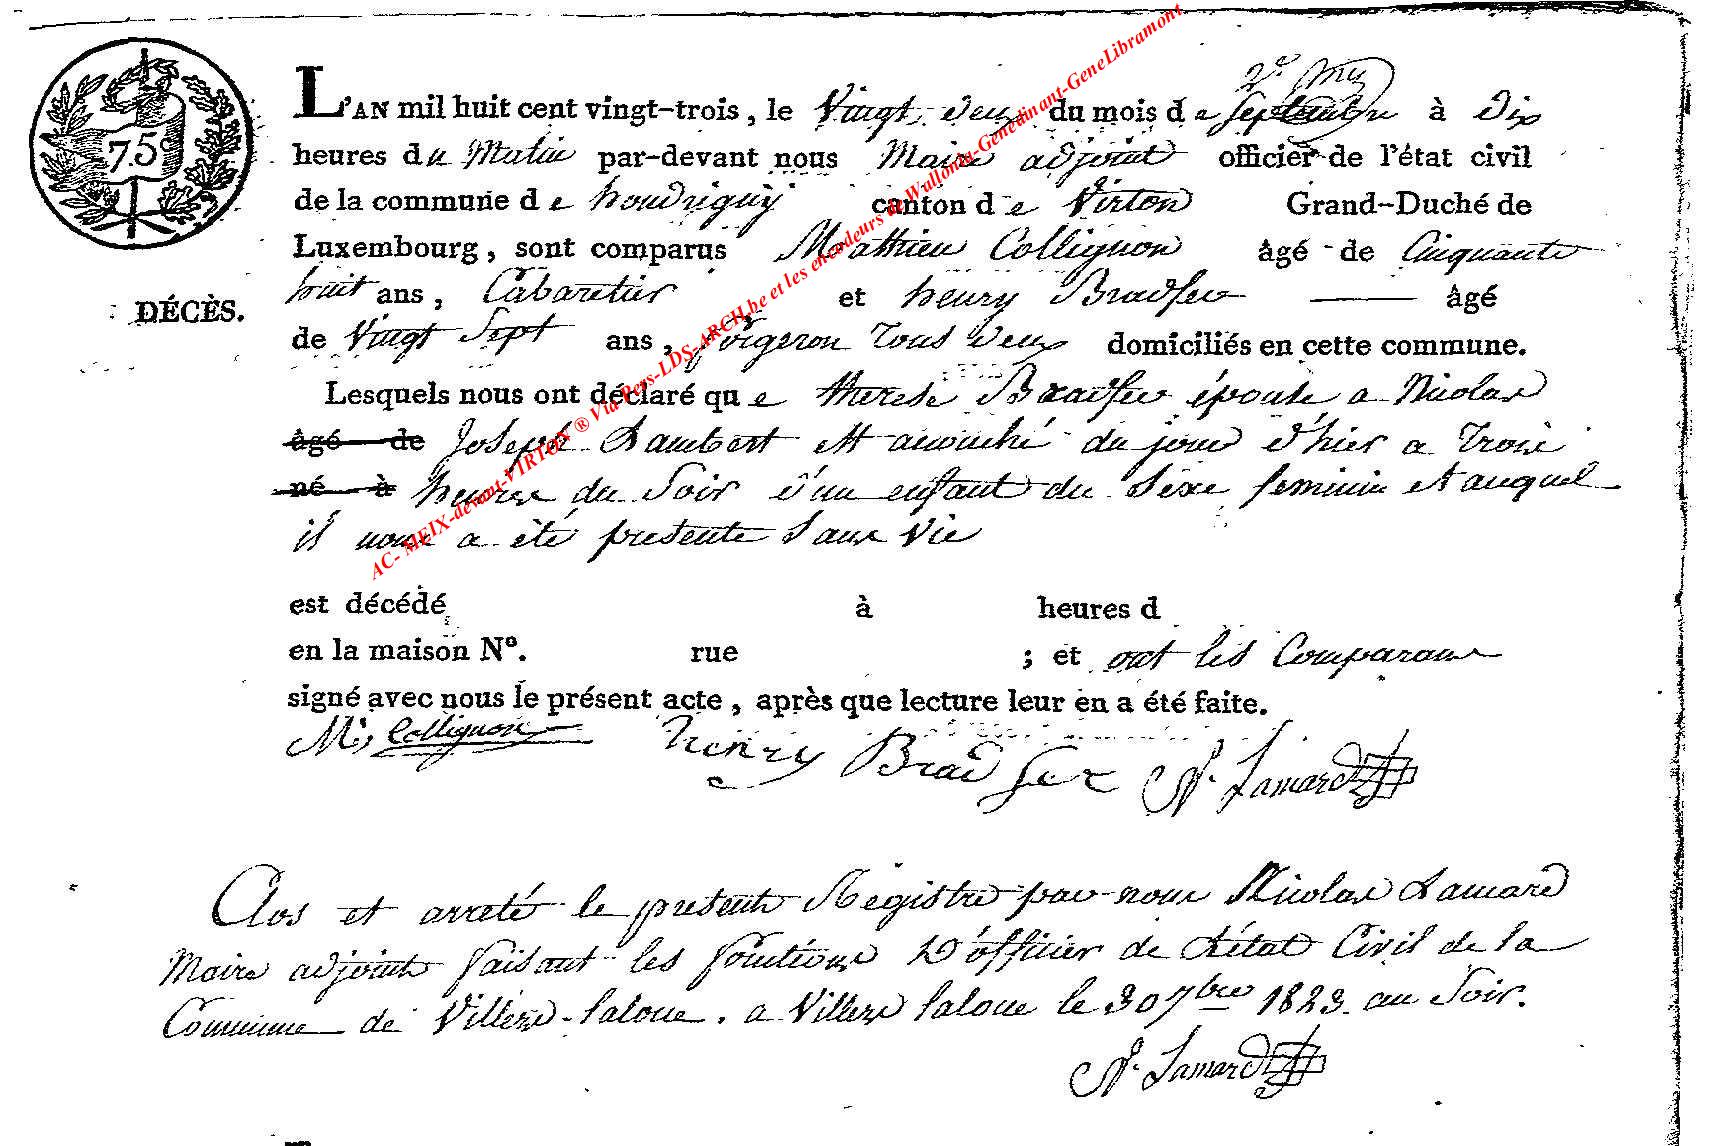 75c
L'AN mil huit cent vingt-trois, le Vingt deux du mois de Septembre à dix
heures du Matin par-devant nous Maire adjoint officier de l'état civil
de la commune de houdrigny canton de Virton Grand-Duché de
Luxembourg, sont comparus Mathieu Collignon âgé de Cinquante
huit ans, Cabaretier et henry Bradfer âgé
DÉCÈS.
de Vingt Sept ans, forgeron Tous deux domiciliés en cette commune.
Lesquels nous ont déclaré que therese Bradfer épouse a Nicolas
âgé de Joseph Lambert est accouché du jour d'hier a Trois
né à heures du Soir d'un enfant du Sexe feminin et auquel
il nous a été presente Sans Vie
est décédé à heures d
en la maison Nº. rue ; et ont les Comparans
signé avec nous le présent acte, après que lecture leur en a été faite.
M. Collignon henry Bradfer N. Lamard
Clos et arreté le present Registre par nous Nicolas Lamard
Maire adjoint faisant les fonctions D'officier de L'état Civil de la
Commune de Villers-laloue. a Villers laloue le 30 7bre 1823 au Soir.
N. Lamard
AC- MEIX-devant-VIRTON ® Via Pers-LDS-ARCH.be et les encodeurs de Wullonia-Genedinant-GeneLibramont